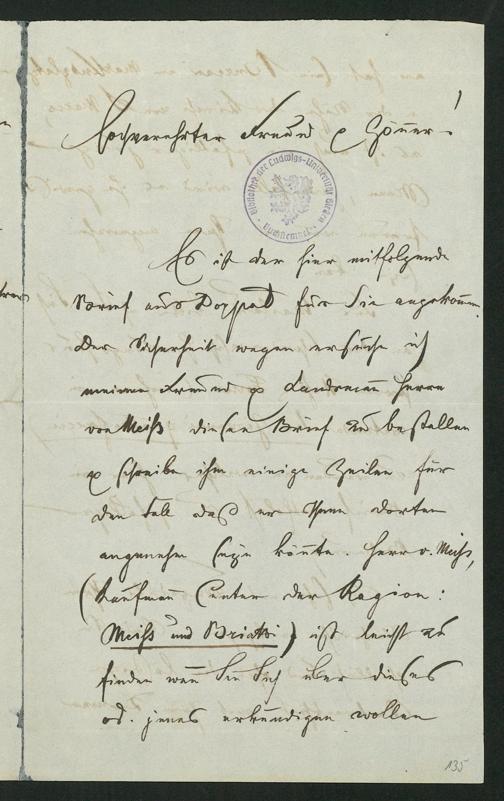 1
Hochverehrter Freund & Gönner.
Bibliothek der Ludwigs-Universität Giessen
Es ist der hier mitfolgende
Brief aus Dorpat für Sie angekommen.
Der Sicherheit wegen ersuche ich
meinen Freund & Landsmann Herrn
von Meiss diesen Brief zu bestellen
& schreibe ihm einige Zeilen für
den Fall daß er Ihnen dorten
angenehm seyn könnte. Herr v. Meiss,
(Kaufmann der Ragion:
Meiss und Briatti) ist leicht zu
finden wenn Sie Sich über dieses
od. jenes erkundigen wollen
135